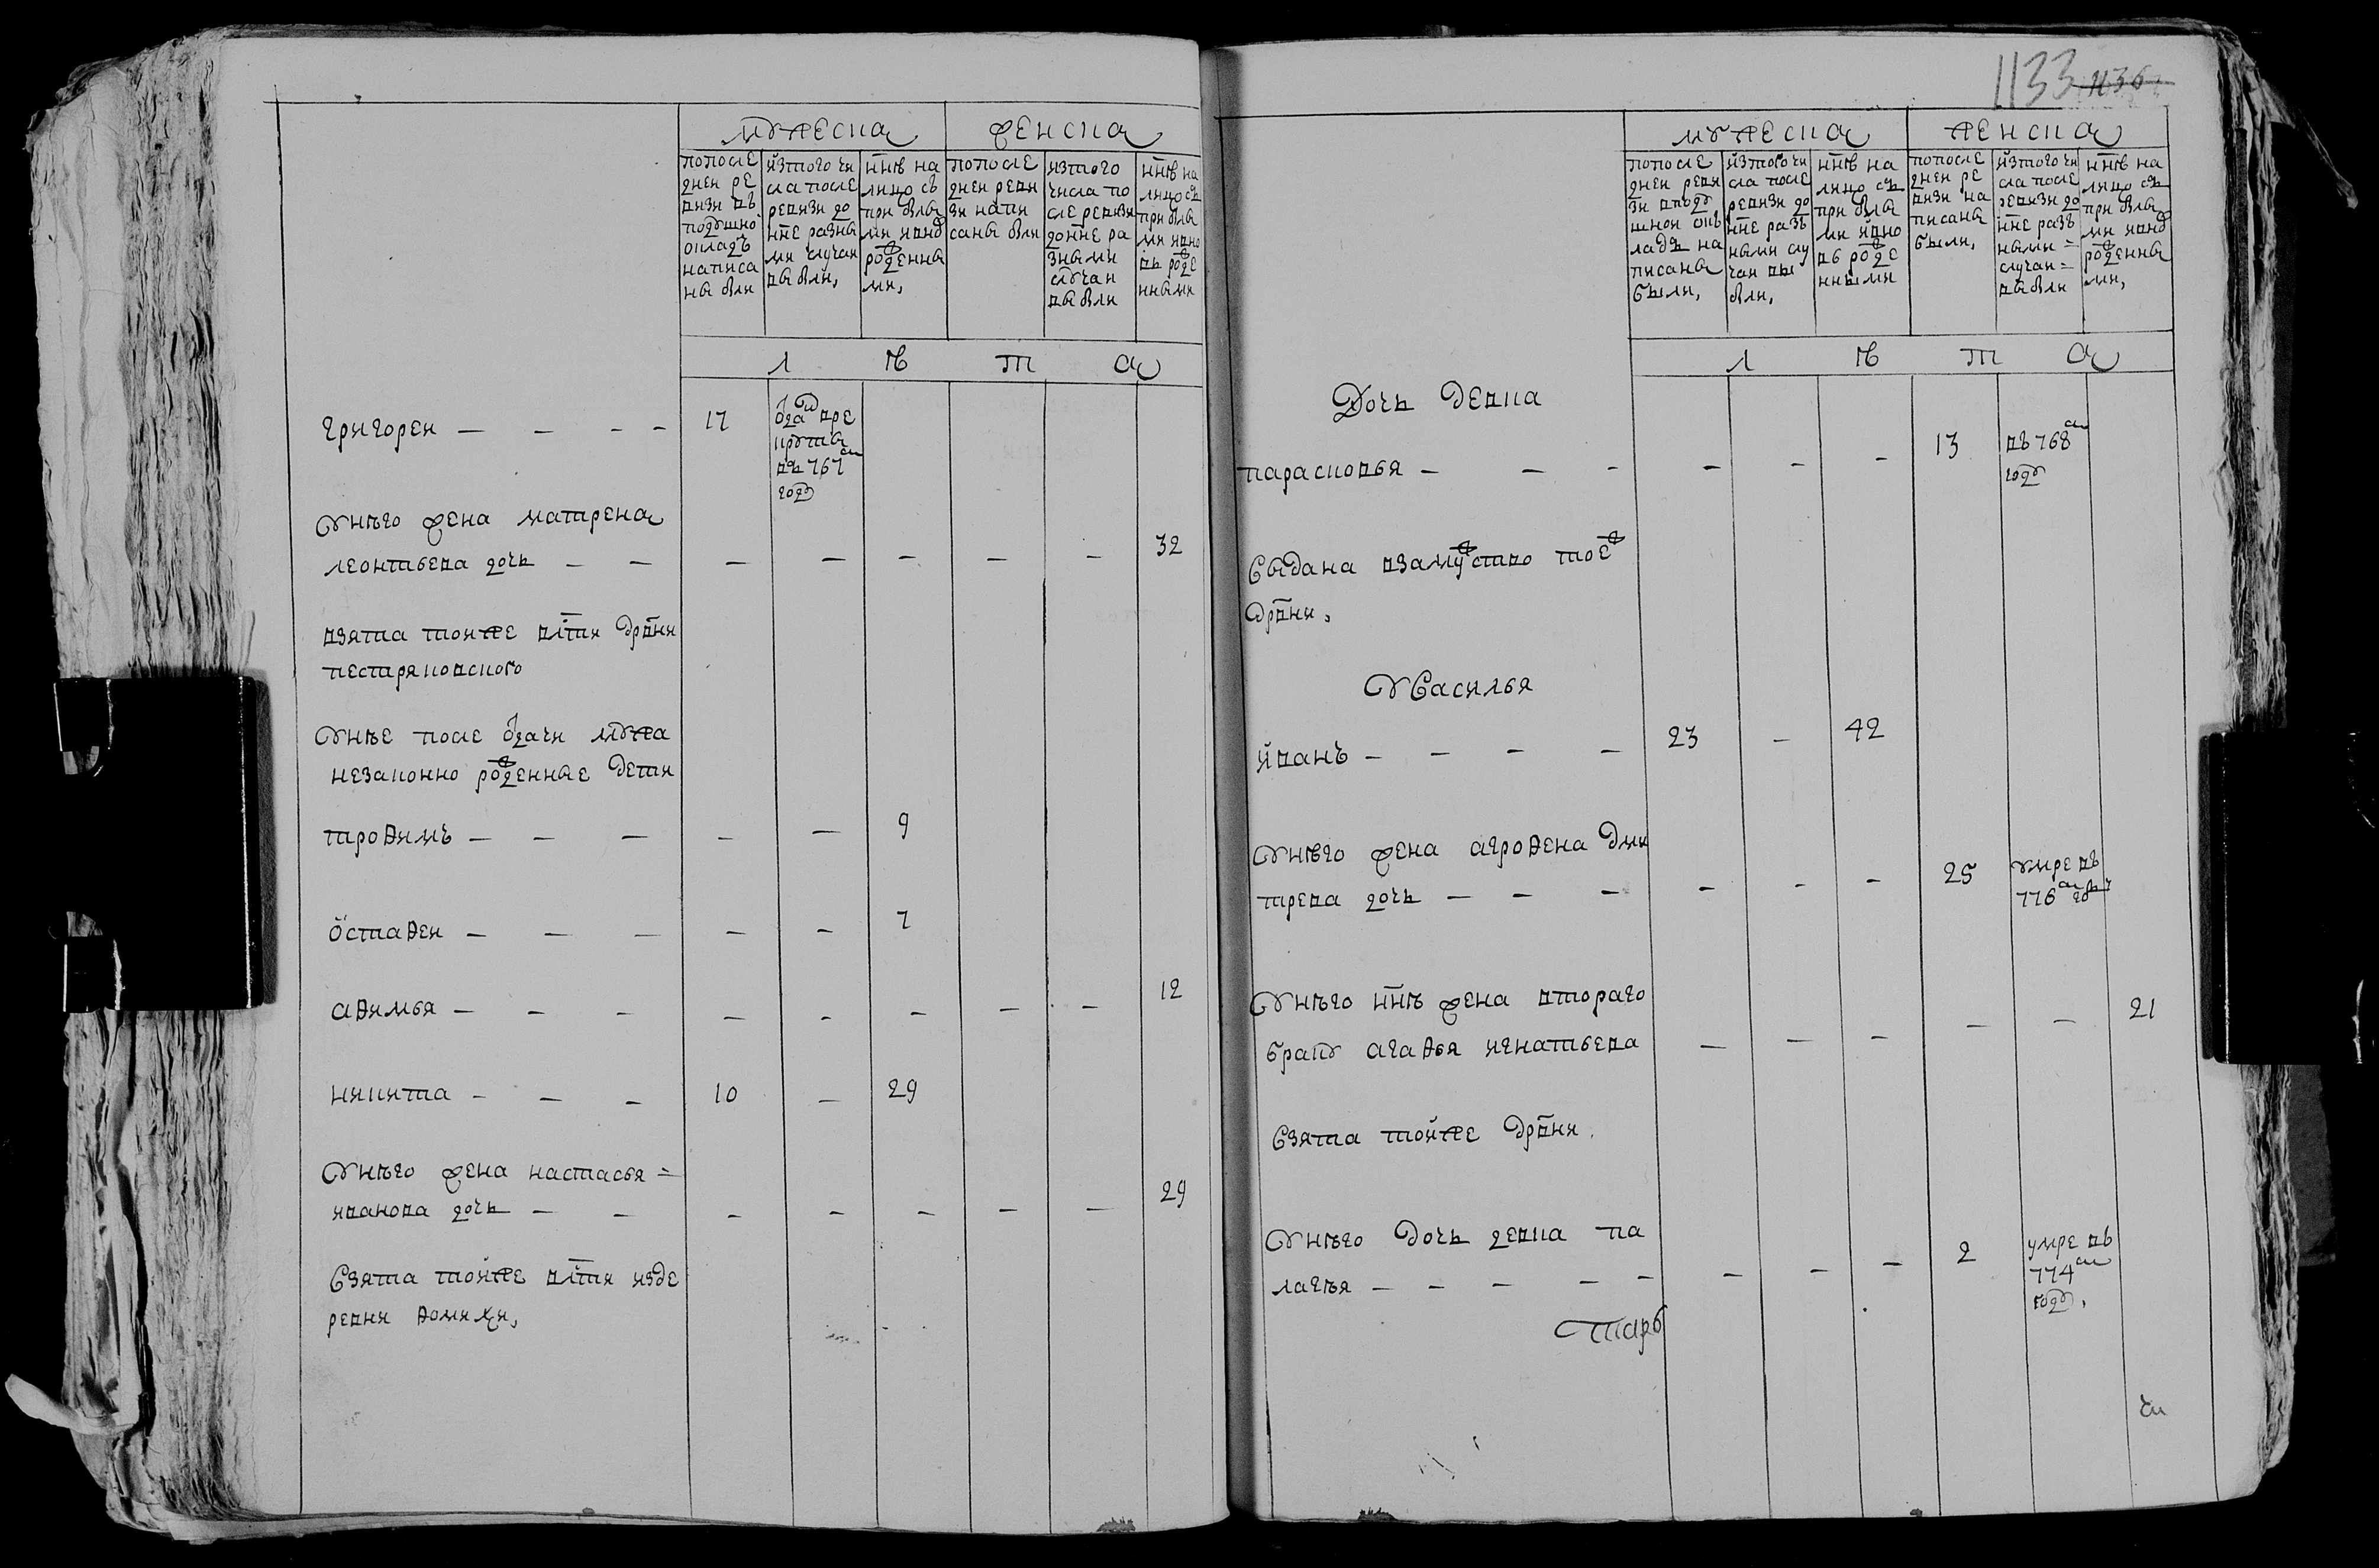 мужеска женска
попосле
дней ре
визи въ
подушно
окладъ
написа
ны были
изтого чи
сла после
ревизи до
нне разны
ми случаи
выбыли,
ннѣ на
лицо съ
прибылы
ми ивнов
рожденны
ми,
попосле
дней реви
зи напи
саны были
изтого
числа по
сле ревизи
донне ра
зными
случаи
выбыли
ннѣ на
лицо съ
прибылы
ми ивно
въ рожде
нными
л ѣ т а
григореи — — — — 17
одан вре
круты
въ 767м
году
Унѣго жена матрена
леонтьева дочь — — — — — — — 32
взята тойже влти дрвни
пестряковского
Унѣе после одачи мужа
незаконно рожденные дети
трофимъ — — — — — 9
остафеи — — — — — 7
афимья — — — — — — — — 12
никита — — — 10 — 29
Унѣго жена настасья =
иванова дочь — — — — — — — 29
Взята тойже влти изде
ревни фомихи,
1133 1136
мужеска женска
попосле
дней реви
зи вподу
шной окъ
ладъ на
писаны
были,
изтого чи
сла после
ревизи до
нне разъ
ными слу
чаи вы
были,
ннѣ на
лицо съ
прибылы
ми ивно
въ рожде
нными
попосле
дней ре
визи на
писаны
были,
изтого чи
сла после
ревизи до
нне разъ
ными =
случаи =
выбыли
ннѣ на
лицо съ
прибылы
ми ивнов
рожденны
ми,
л ѣ т а
Дочь девка
парасковья — — — — — — 13 въ 768м
году
Выдана взамужство тоеж
дрвни,
У Василья
иванъ — — — — 23 — 42
Унѣго жена агрофена дми
трева дочь — — — — — — 25 умре въ
776м году
Унѣго ннѣ жена втораго
браку агафья игнатьева — — — — — 21
Взята тойже дрвни.
Унѣго дочь девка па
лагѣя — — — — — — — — 2 умре въ
774м
году,